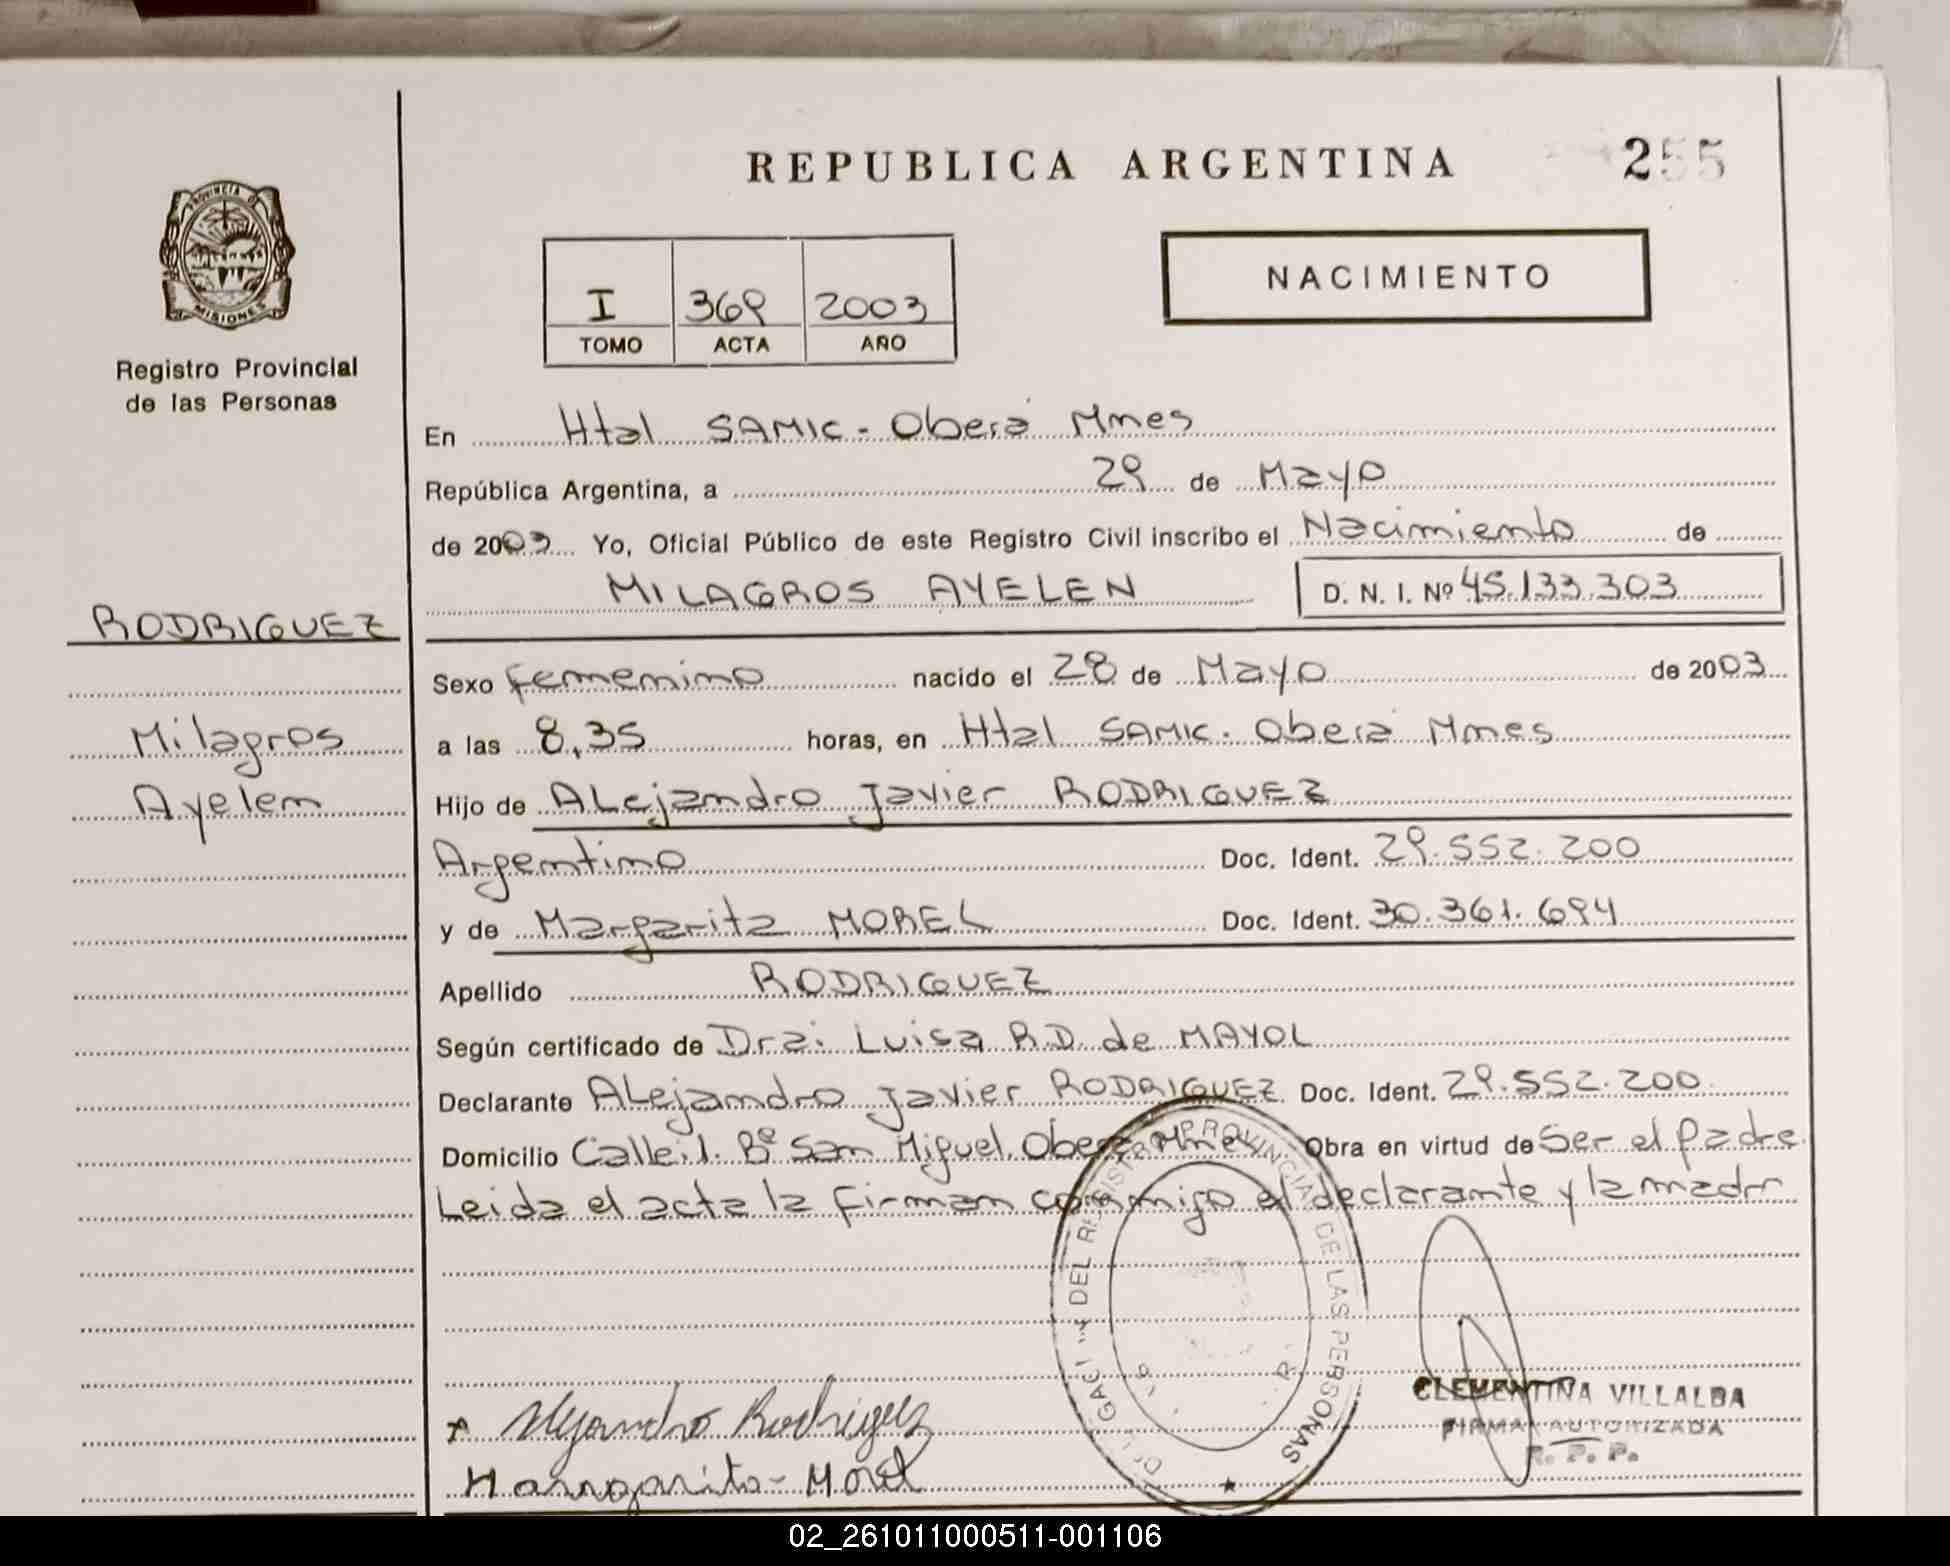 REPUBLICA ARGENTINA
255
PROVINCIA DE MISIONES
Registro Provincial
de las Personas
NACIMIENTO
I 369 2003
TOMO ACTA AÑO
En Htal SAMIC - Oberá Mnes
República Argentina, a 29 de Mayo
de 2003 Yo, Oficial Público de este Registro Civil inscribo el Nacimiento de
MILAGROS AYELEN D. N. I. Nº 45.133.303
RODRIGUEZ
Milagros
Ayelen
Sexo femenino nacido el 28 de Mayo de 2003
a las 8,35 horas, en Htal SAMIC. Oberá Mnes
Hijo de ALejandro Javier RODRIGUEZ
Argentino Doc. Ident. 29.552.200
y de Margarita MOREL Doc. Ident. 30.361.694
Apellido RODRIGUEZ
Según certificado de Dra: Luisa R.D. de MAYOL
Declarante ALejandro Javier RODRIGUEZ Doc. Ident. 29.552.200
Domicilio Calle:1. Bº San Miguel. Oberá Mnes Obra en virtud de Ser el Padre.
Leida el acta la firman conmigo el declarante y la madre
DEL REGISTRO PROVINCIAL DE LAS PERSONAS
Alejandro Rodriguez
Margarita - Morel
CLEMENTINA VILLALBA
FIRMA AUTORIZADA
R. P. P.
02_261011000511-001106